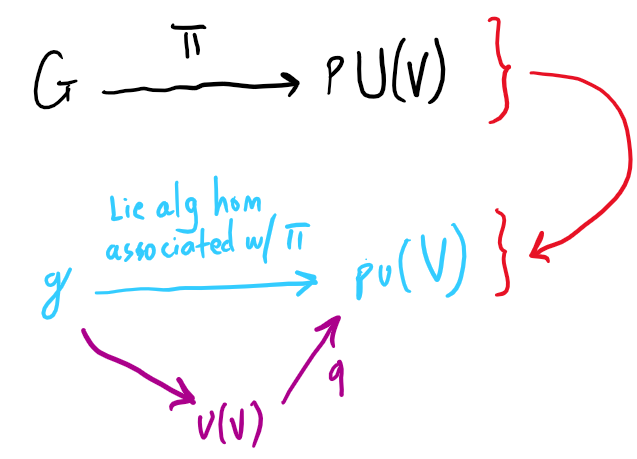 Π
G PU(V)
Lie alg hom
associated w/ Π
g pu(V)
q
u(V)